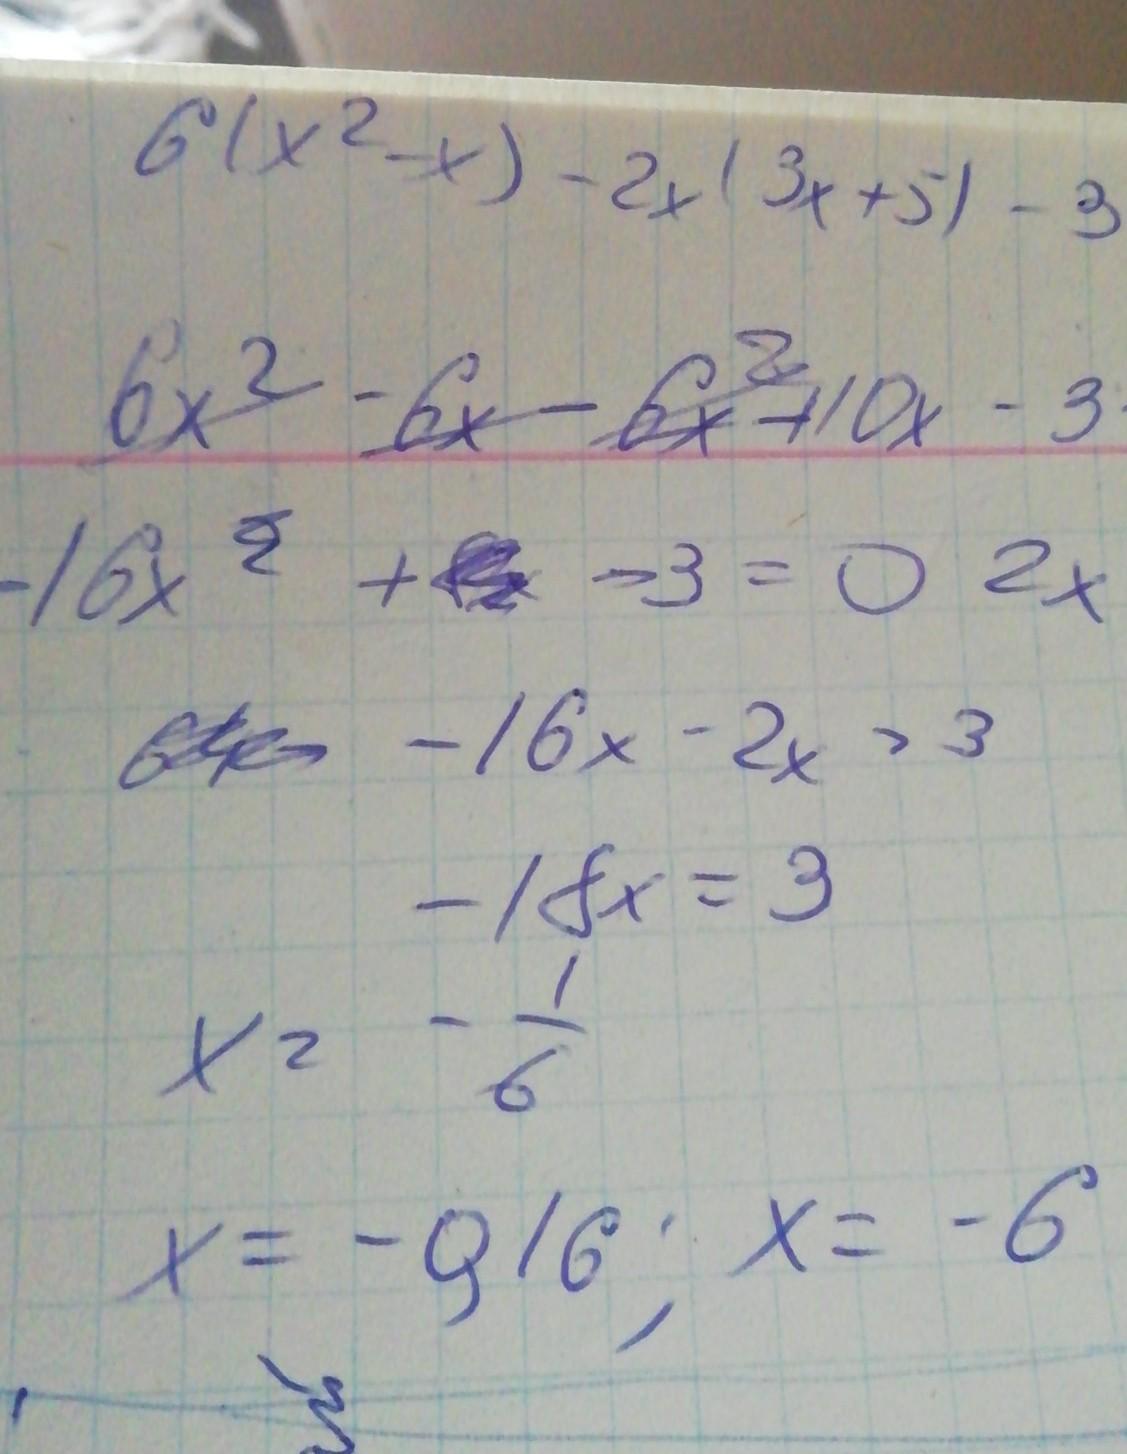 6(x² - x) - 2x(3x + 5) - 3
6x² - 6x - 6x² + 10x - 3
-16x² + - 3 = 0 2x
-16x - 2x = 3
-18x = 3
x = - 1/6
x = -0,16; x = -6